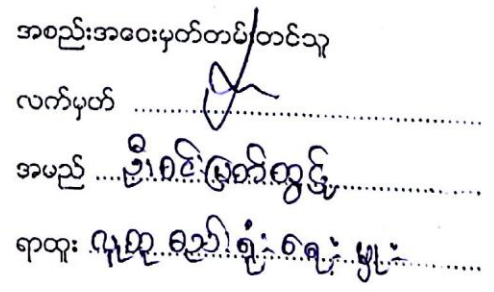 အစည်းအဝေးမှတ်တမ်းတင်သူ
လက်မှတ် ........................
အမည် ... ဦးစင်မြတ်ထွဋ် ........................
ရာထူး လူထု စည်းရုံးရေးမှူး ........................